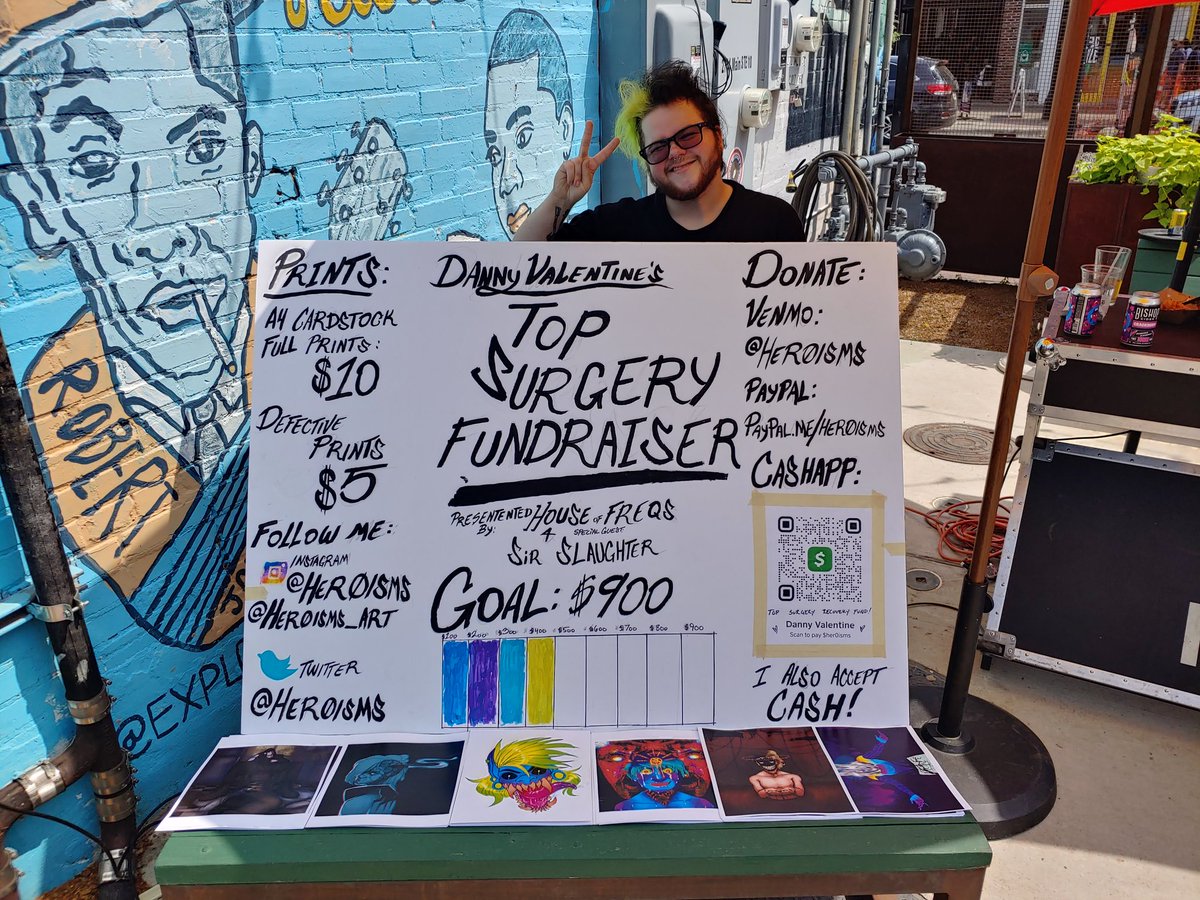 PRINTS:
A4 CARDSTOCK
FULL PRINTS:
$10
DEFECTIVE
PRINTS
$5
FOLLOW ME:
INSTAGRAM
@HERØISMS
@HERØISMS_ART
TWITTER
@HERØISMS
DANNY VALENTINE'S
TOP
SURGERY
FUNDRAISER
PRESENTENTED
BY:
HOUSE OF FREQS
&
SPECIAL GUEST
SIR SLAUGHTER
GOAL: $900
$100 $200 $300 $400 $500 $600 $700 $800 $900
DONATE:
VENMO:
@HERØISMS
PAYPAL:
PAYPAL.ME/HERØISMS
CASHAPP:
$
TOP SURGERY RECOVERY FUND!
Danny Valentine
Scan to pay $her0isms
I ALSO ACCEPT
CASH!
ROBERT
@EXPL
BISHOP